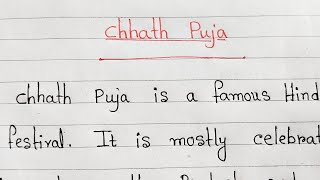 Chhath Puja
Chhath Puja is a famous Hind
festival. It is mostly celebrat